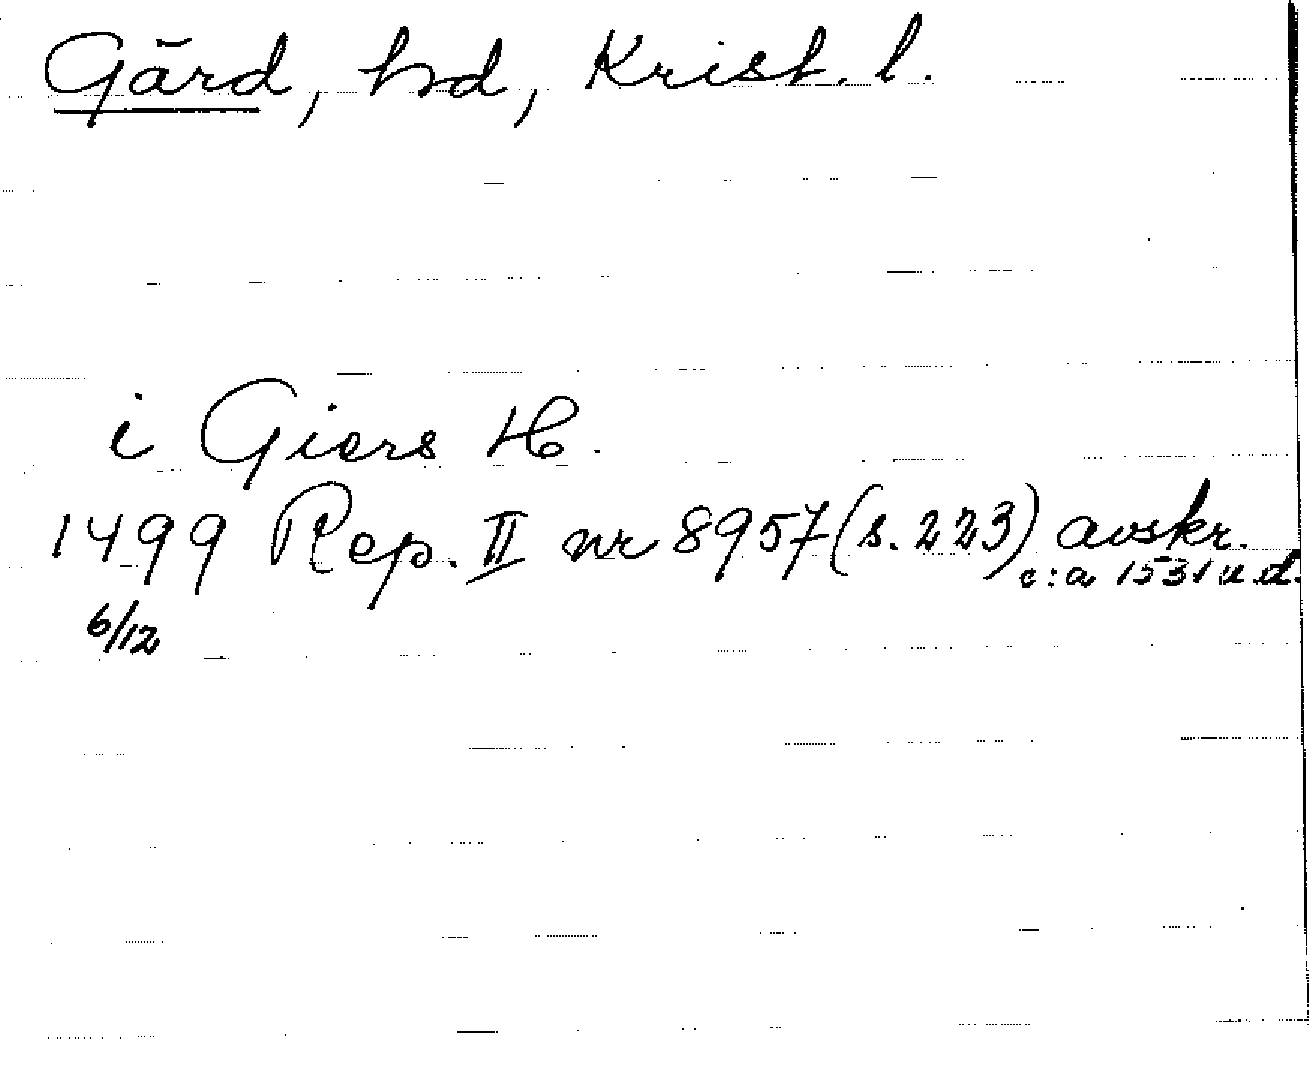 Gärd, hd, Krist. l.
i Giers H.
1499 Rep. II nr 8957 (s. 223) avskr.
c:a 1531 u.d.
6/12